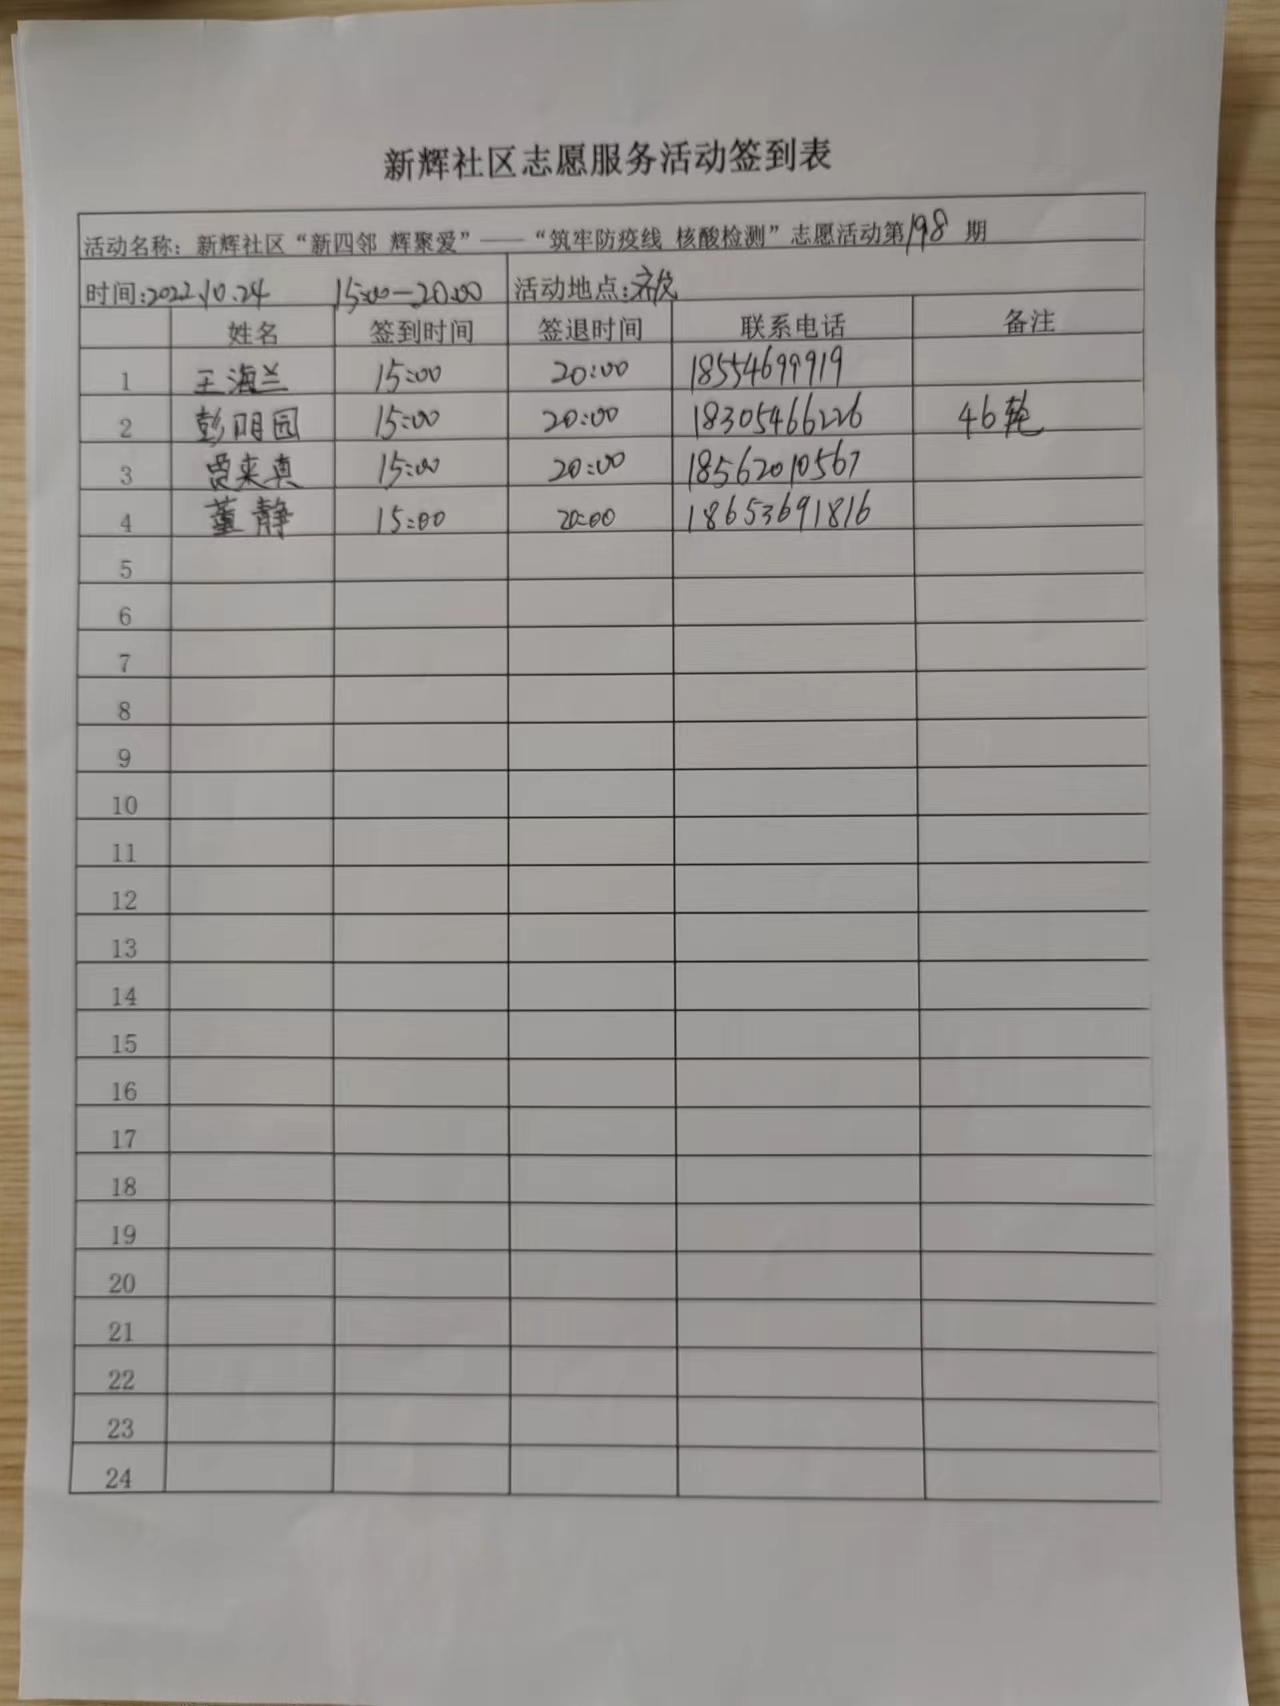 新辉社区志愿服务活动签到表
活动名称：新辉社区“新四邻 辉聚爱”——“筑牢防疫线 核酸检测”志愿活动第198期
时间：2022.10.24 15:00—20:00 活动地点：
姓名 签到时间 签退时间 联系电话 备注
1 王海兰 15:00 20:00 18554699919
2 彭明园 15:00 20:00 18305466226 46轮
3 贾来真 15:00 20:00 18562010567
4 董静 15:00 20:00 18653691816
5
6
7
8
9
10
11
12
13
14
15
16
17
18
19
20
21
22
23
24